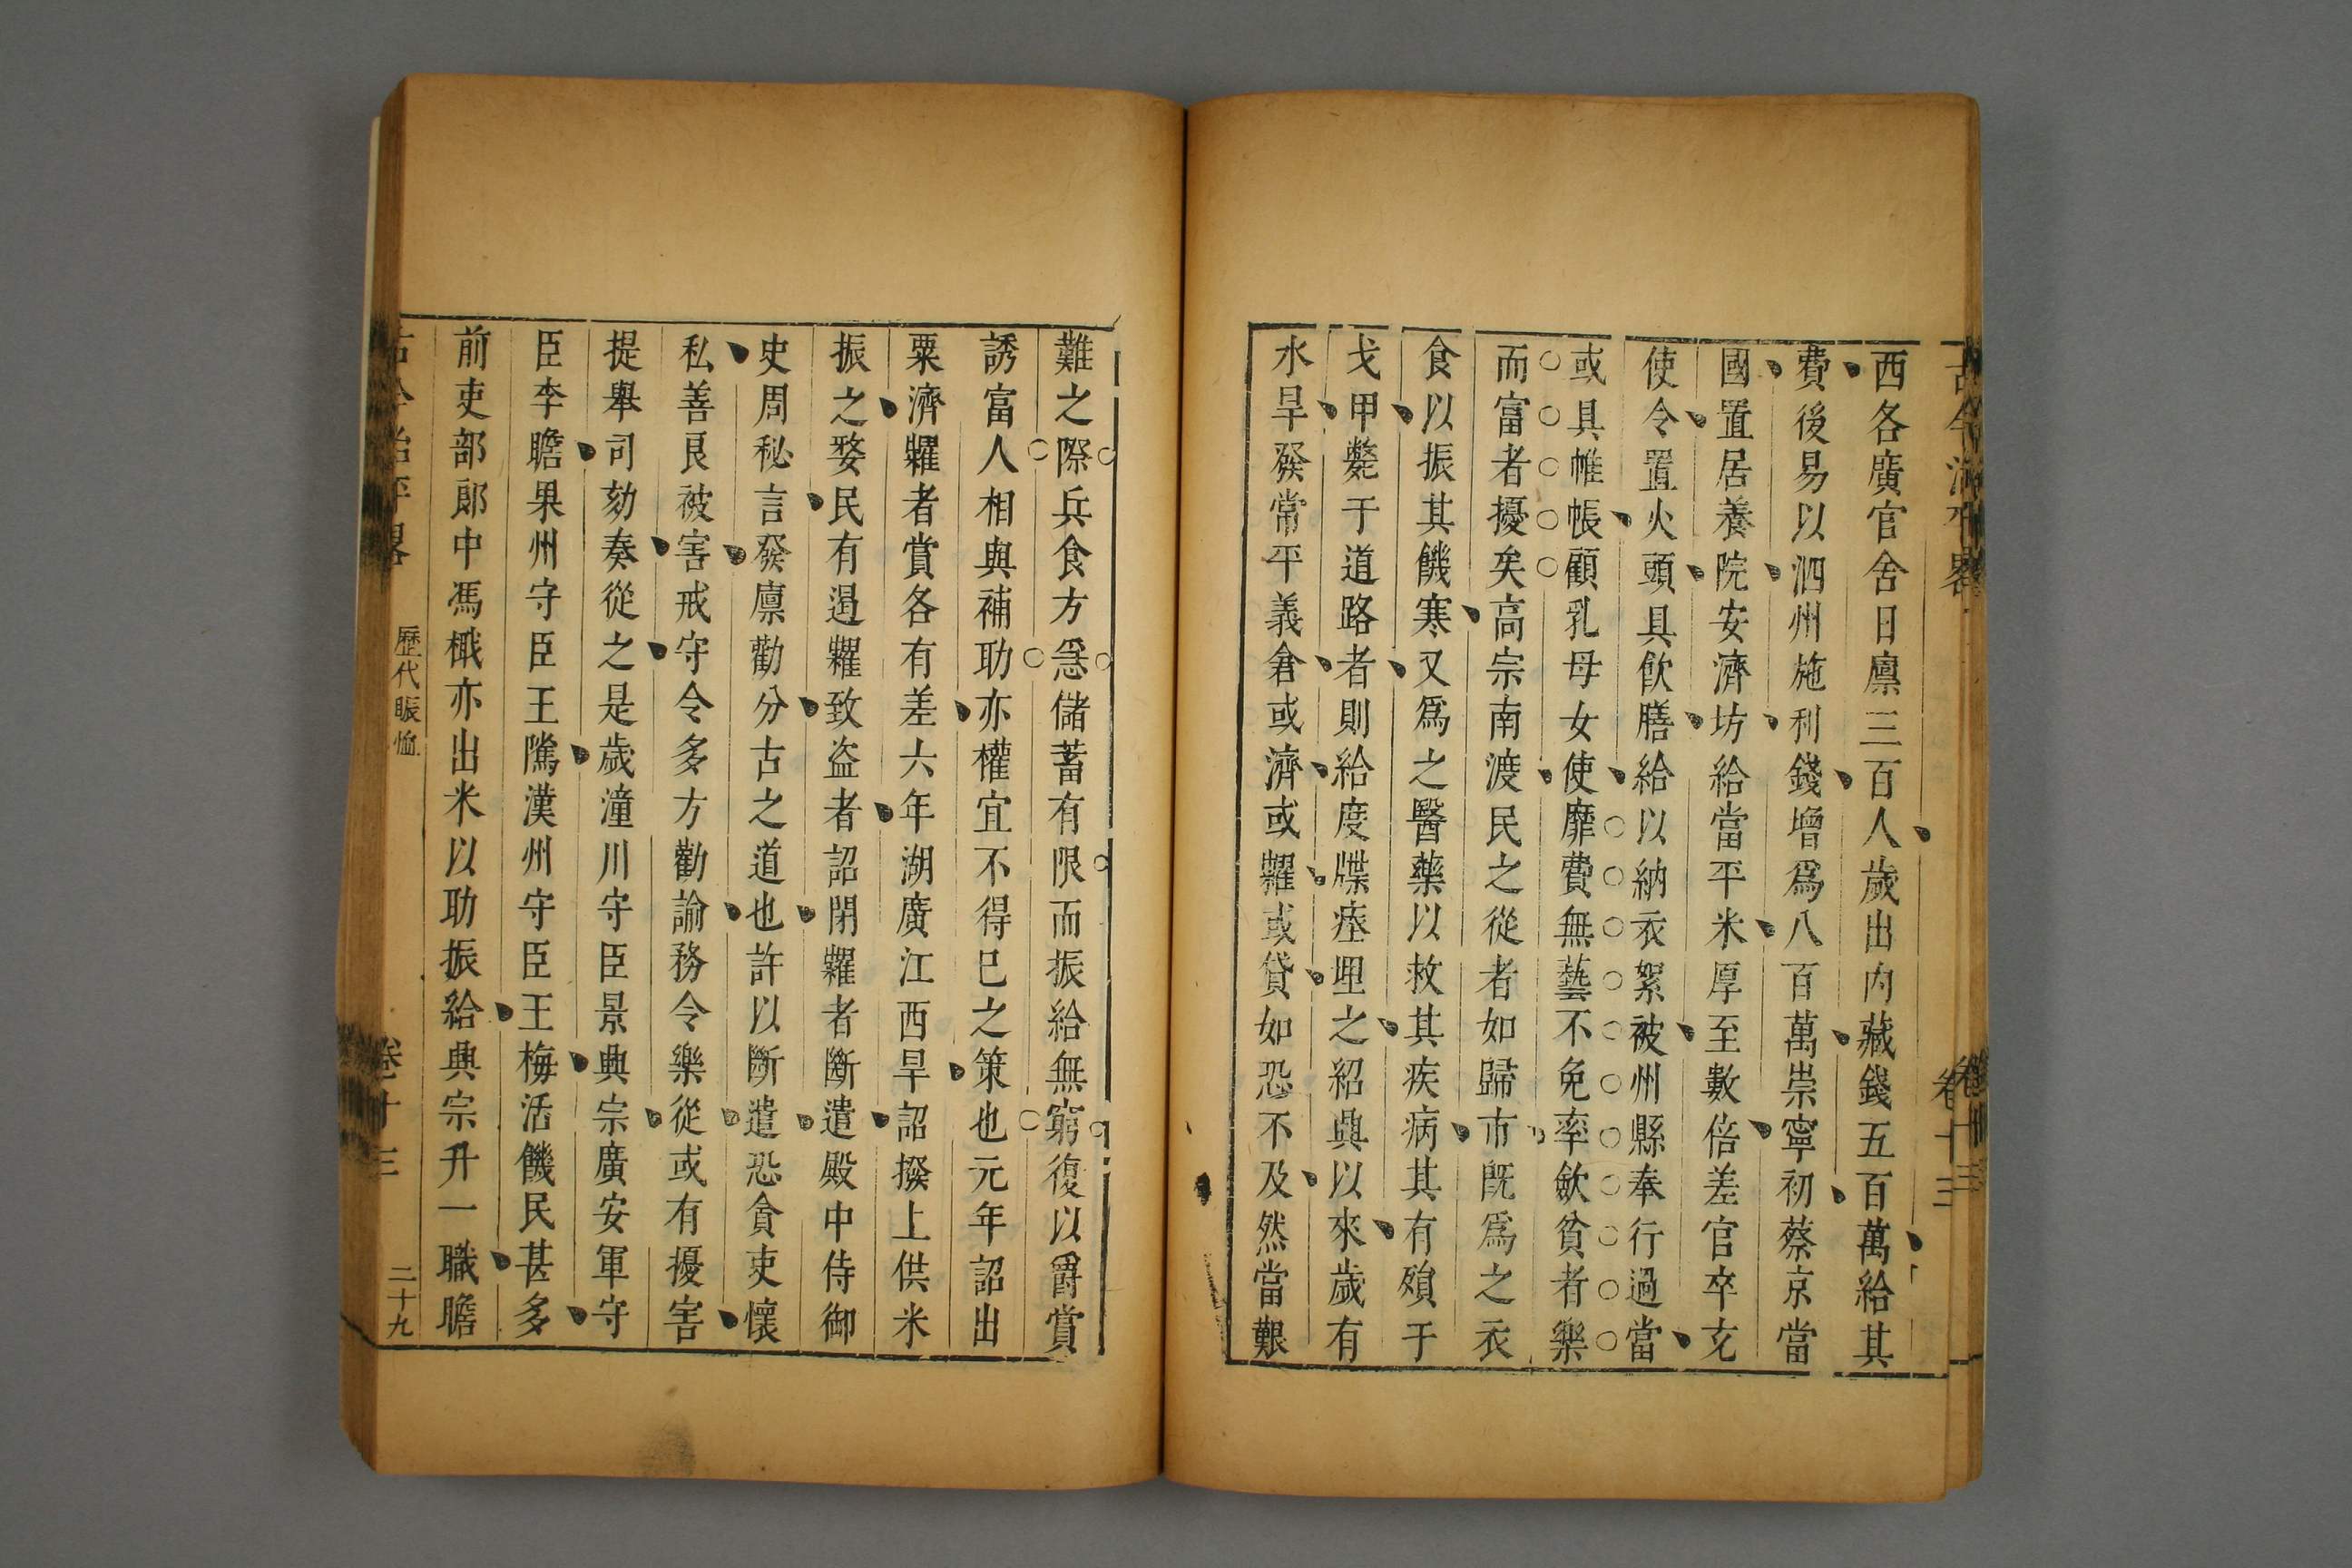 古今治平畧
卷十三
西各廣官舍日廪三百人歲出內藏錢五百萬給其
費後易以泗州施利錢增爲八百萬崇寧初蔡京當
國置居養院安濟坊給當平米厚至數倍差官卒充
使令置火頭具飲膳給以納衣絮被州縣奉行過當
或具帷帳顧乳母女使靡費無藝不免率歛貧者樂
而富者擾矣高宗南渡民之從者如歸市旣爲之衣
食以振其饑寒又爲之醫藥以救其疾病其有殞于
戈甲斃于道路者則給度牒瘞埋之紹興以來歲有
水旱發常平義倉或濟或糶或貸如恐不及然當艱
難之際兵食方急儲蓄有限而振給無窮復以爵賞
誘富人相與補助亦權宜不得巳之策也元年詔出
粟濟糶者賞各有差六年湖廣江西旱詔撥上供米
振之婺民有遏糴致盜者詔閉糴者斷遣殿中侍御
史周秘言發廪勸分古之道也許以斷遣恐貪吏懷
私善良被害戒守令多方勸諭務令樂從或有擾害
提舉司劾奏從之是歲潼川守臣景興宗廣安軍守
臣李瞻果州守臣王隲漢州守臣王梅活饑民甚多
前吏部郞中馮檝亦出米以助振給興宗升一職瞻
古今治平畧
歷代賑恤
卷十三
二十九